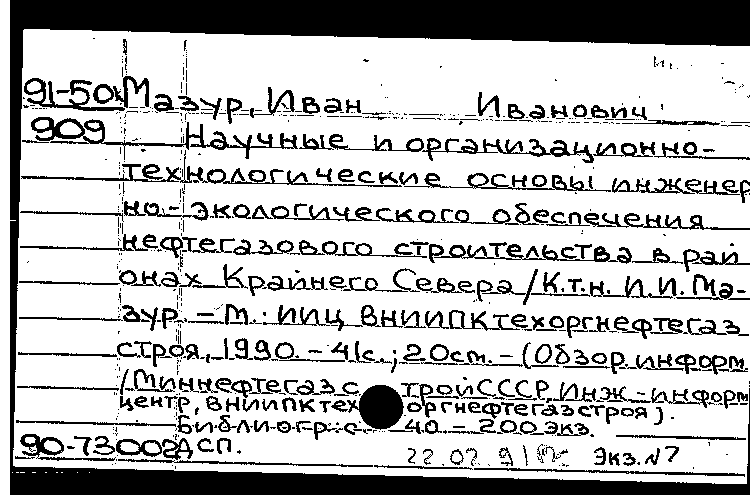 91-50к Мазур, Иван Иванович
909 Научные и организационно-
технологические основы инженер
но-экологического обеспечения
нефтегазового строительства в рай
онах Крайнего Севера / К.т.н. И.И. Ма-
зур. - М.: ИИЦ ВНИИПКтехоргнефтегаз
строя, 1990. - 41с.; 20см. - (Обзор. информ
/ Миннефтегазстрой СССР, Инж.-информ
центр, ВНИИПКтехоргнефтегазстроя).
Библиогр.: с. 40. - 200 экз.
90-73002 ДСП.
22.02.91 Экз. №7